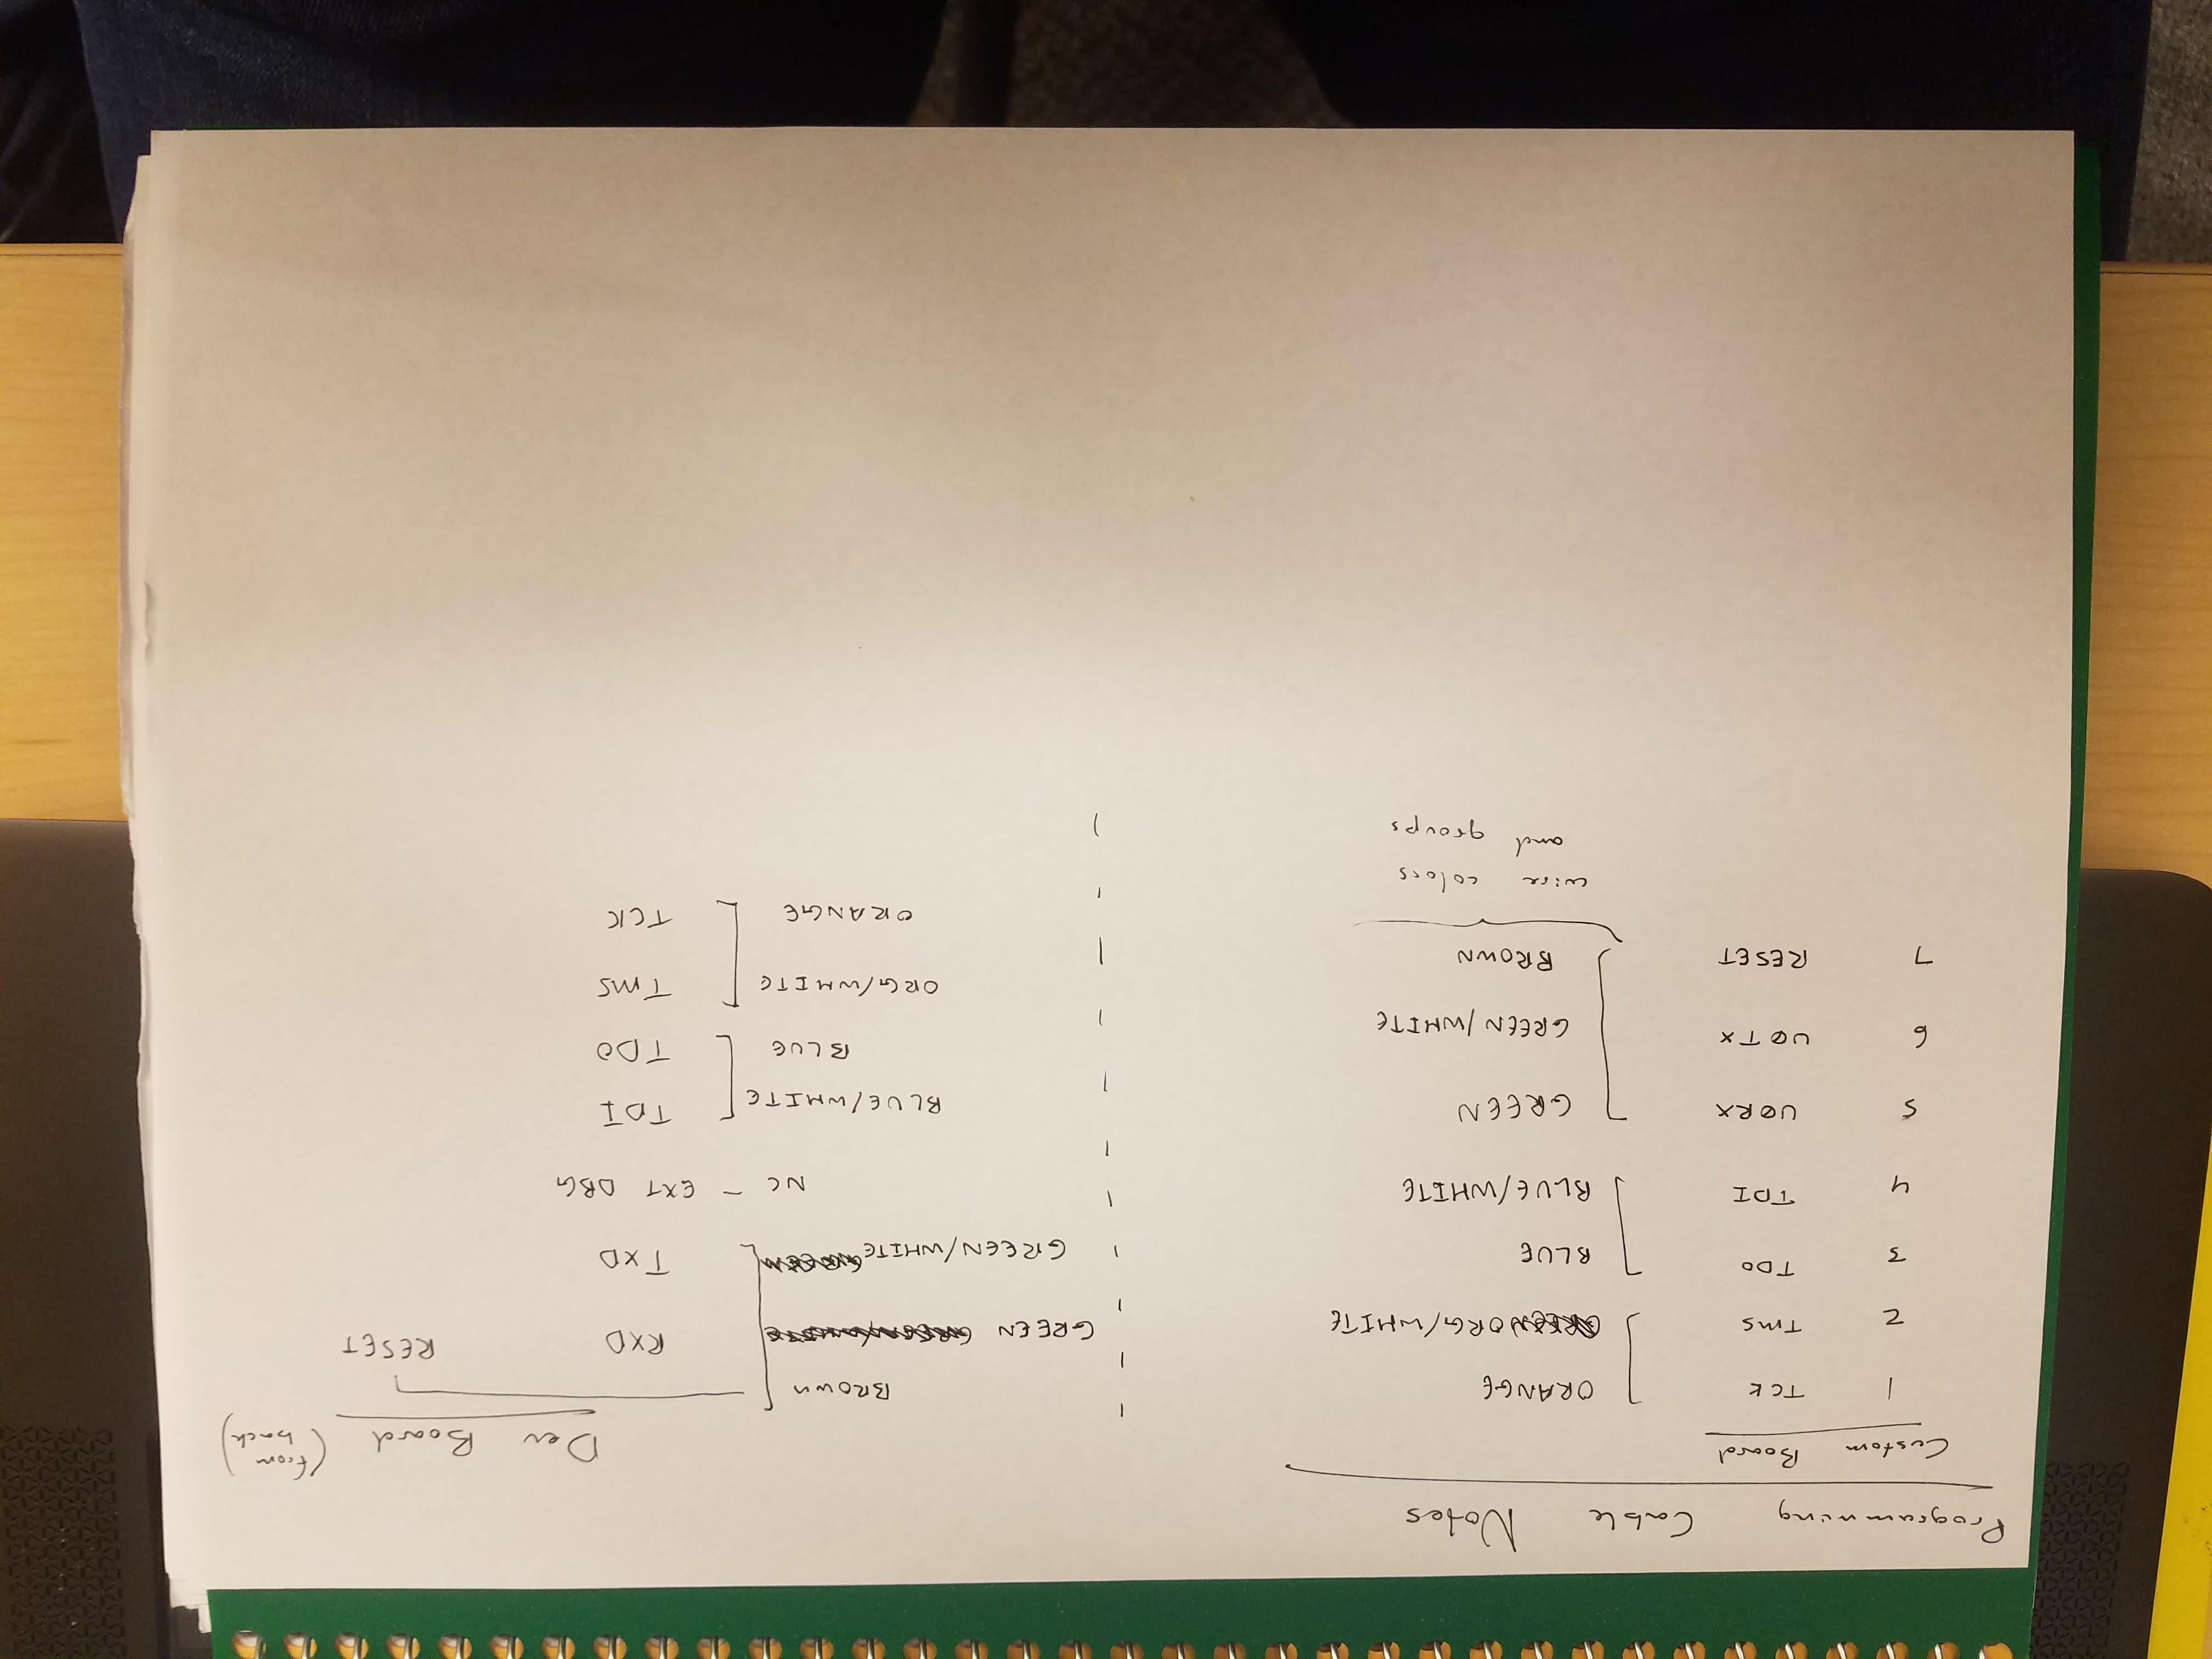 Programming Cable Notes
Custom Board
1 TCK ORANGE
2 TMS ORG/WHITE
3 TDO BLUE
4 TDI BLUE/WHITE
5 UØRX GREEN
6 UØTX GREEN/WHITE
7 RESET BROWN
wire colors
and groups
Dev Board (from
back)
BROWN
GREEN GREEN/WHITE RXD RESET
GREEN/WHITE GREEN TXD
NC - EXT DBG
BLUE/WHITE TDI
BLUE TDO
ORG/WHITE TMS
ORANGE TCK